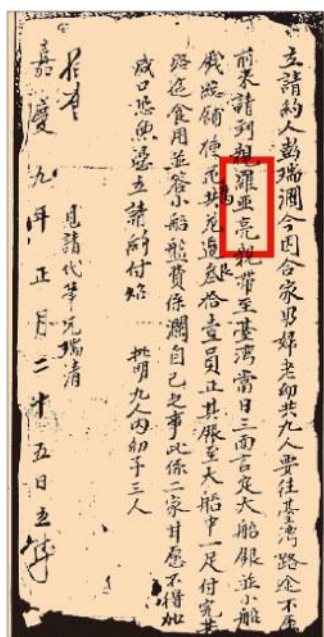 立請約人彭瑞瀾今因合家男婦老幼共九人要往臺灣路途不
前來請到親羅亞亮親帶至臺灣當日三面言定大船銀並小船
錢 鋪 花共花邊叁拾壹員正其銀至大船中一足付完其
路途食用並答小船盤費係瀾自己之事此係二家甘愿不得加
減口恐無憑立請約付炤 批明九人內幼子三人
見請代筆兄瑞清
嘉慶九年正月二十五日立